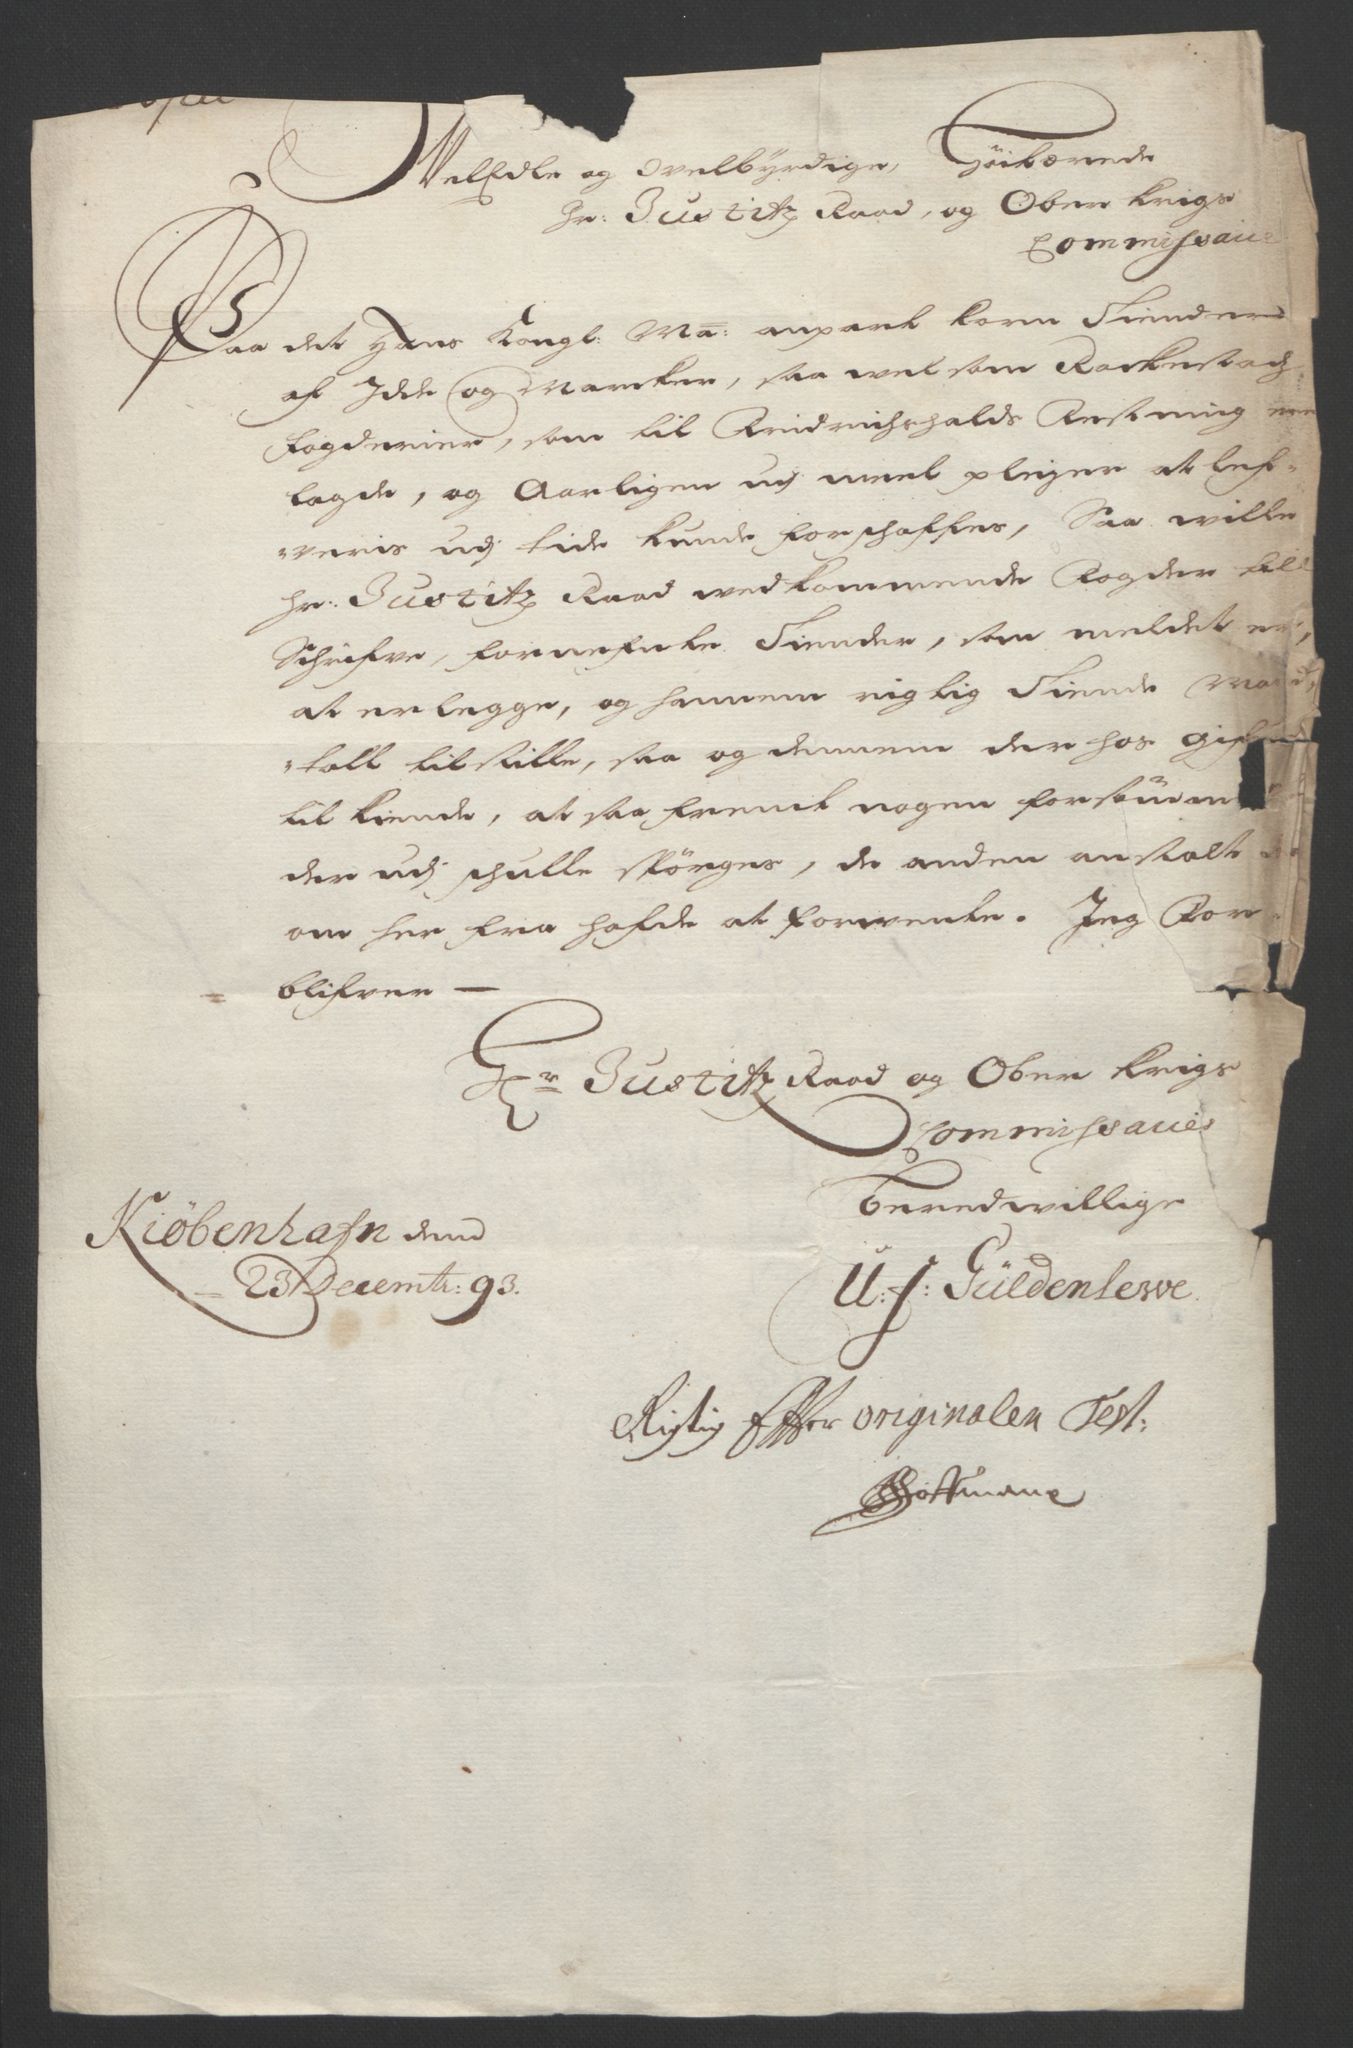 WelEdle og Velbyrdige, Høitærede
Hr: Justitz Raad, og Ober Krigs
Commissarie
Paa det Hans Kongl: Ma: anpart korn Tienderne
af Idde og Marcker, saa vel som Rackestads
fogderier, som til Fridrichshalds Festning ere
lagde, og Aarligen udj meel pleyer at lef-
veris udj tide kunde forschaffes, Saa wille
Hr: Justitz Raad wedkommende Fogder till
Schrifve, forneffnte Tiender, som meldet er,
at erlegge, og hannem rigtig Tiende Mand-
tall tilstille, saa og dennem der hos gifve
til kiende, at saa fremt nogen forsömmelse
der udj schulle spörges, de anden anstalt der
om her fra hafde at forvente. Jeg For-
blifver —
Hr Justitz Raad og Ober Krigs
Commissaries
Beredwillige
U: F: Güldenlewe.
Kiöbenhafn dend
23 Decemb: 93.
Rigtig Effter originalen Test: